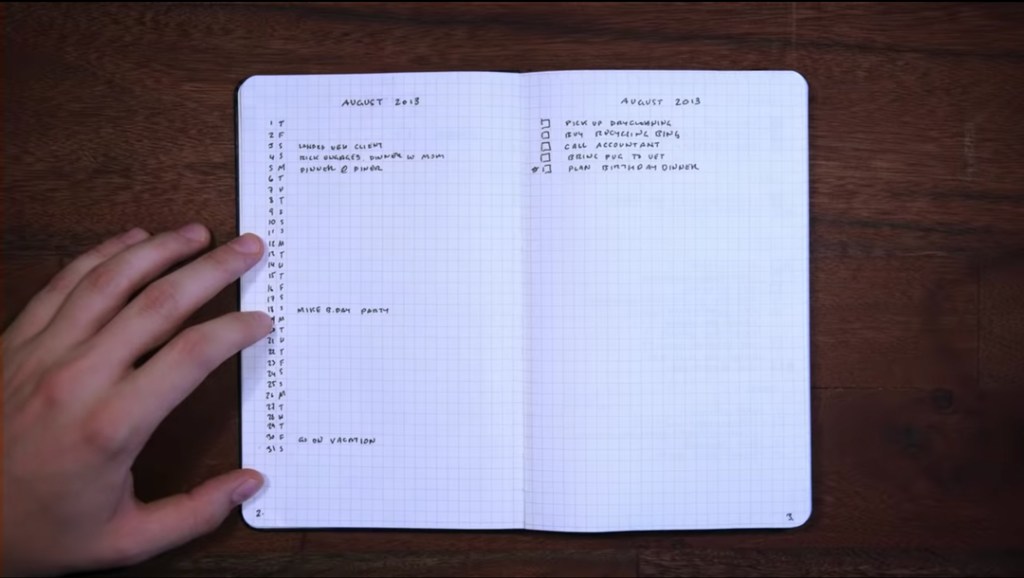 AUGUST 2013
1 T
2 F
3 S LANDED NEW CLIENT
4 S RICK ENGAGED DINNER W MOM
5 M DINNER @ DINER
6 T
7 W
8 T
9 S
10 S
11 S
12 M
13 T
14 W
15 T
16 F
17 S
18 S MIKE B.DAY PARTY
19 M
20 T
21 W
22 T
23 F
24 S
25 S
26 M
27 T
28 W
29 T
30 F GO ON VACATION
31 S
2.
AUGUST 2013
PICK UP DRYCLEANING
BUY RECYCLING BINS
CALL ACCOUNTANT
BRING PUG TO VET
* PLAN BIRTHDAY DINNER
3